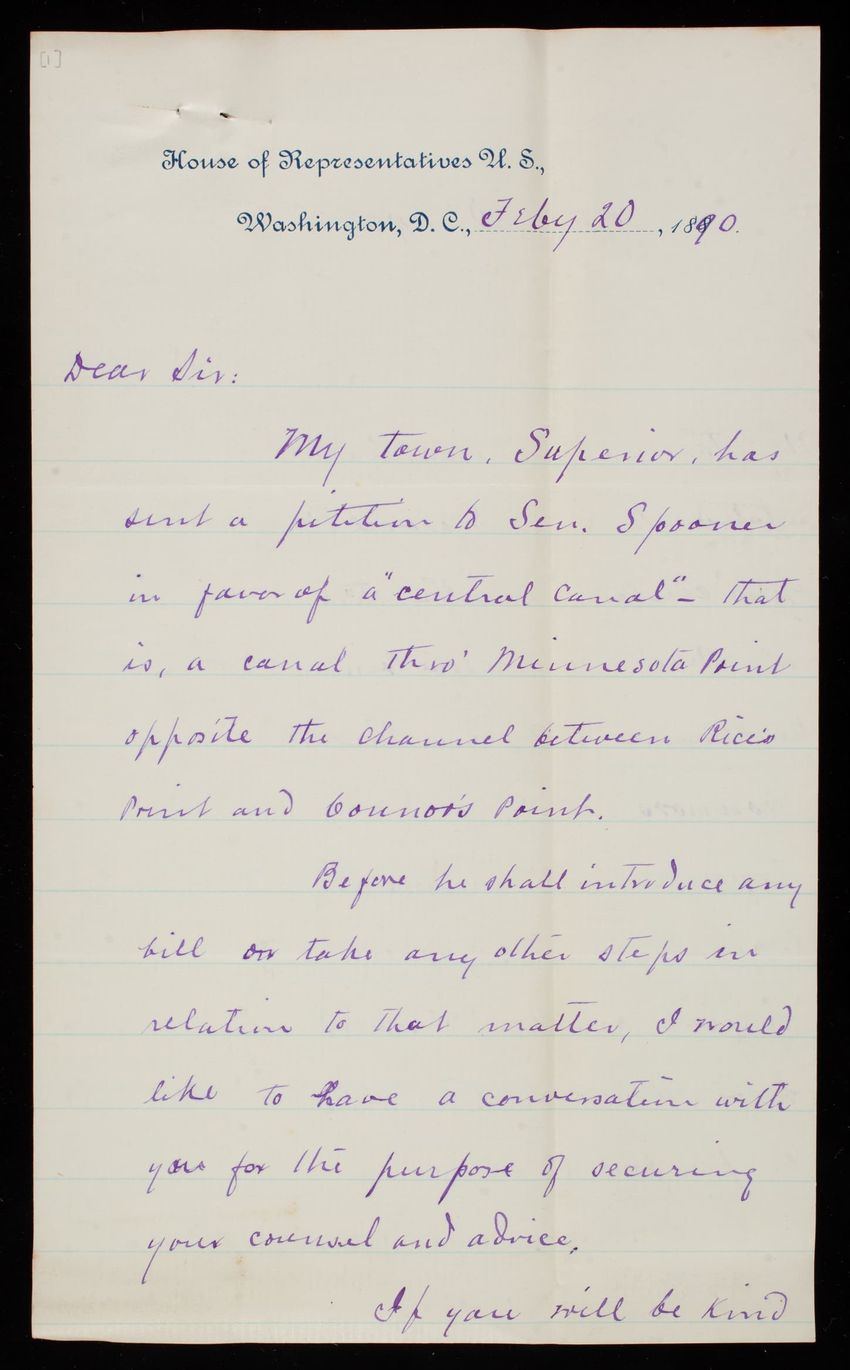 [1]
House of Representatives U. S.,
Washington, D. C., Feby 20, 1890.
Dear Sir:
My town, Superior, has
sent a petition to Sen. Spooner
in favor of a "central canal" - that
is, a canal thro' Minnesota Point
opposite the channel between Rice's
Point and Connor's Point.
Before he shall introduce any
bill or take any other steps in
relation to that matter, I would
like to have a conversation with
you for the purpose of securing
your counsel and advice.
If you will be kind